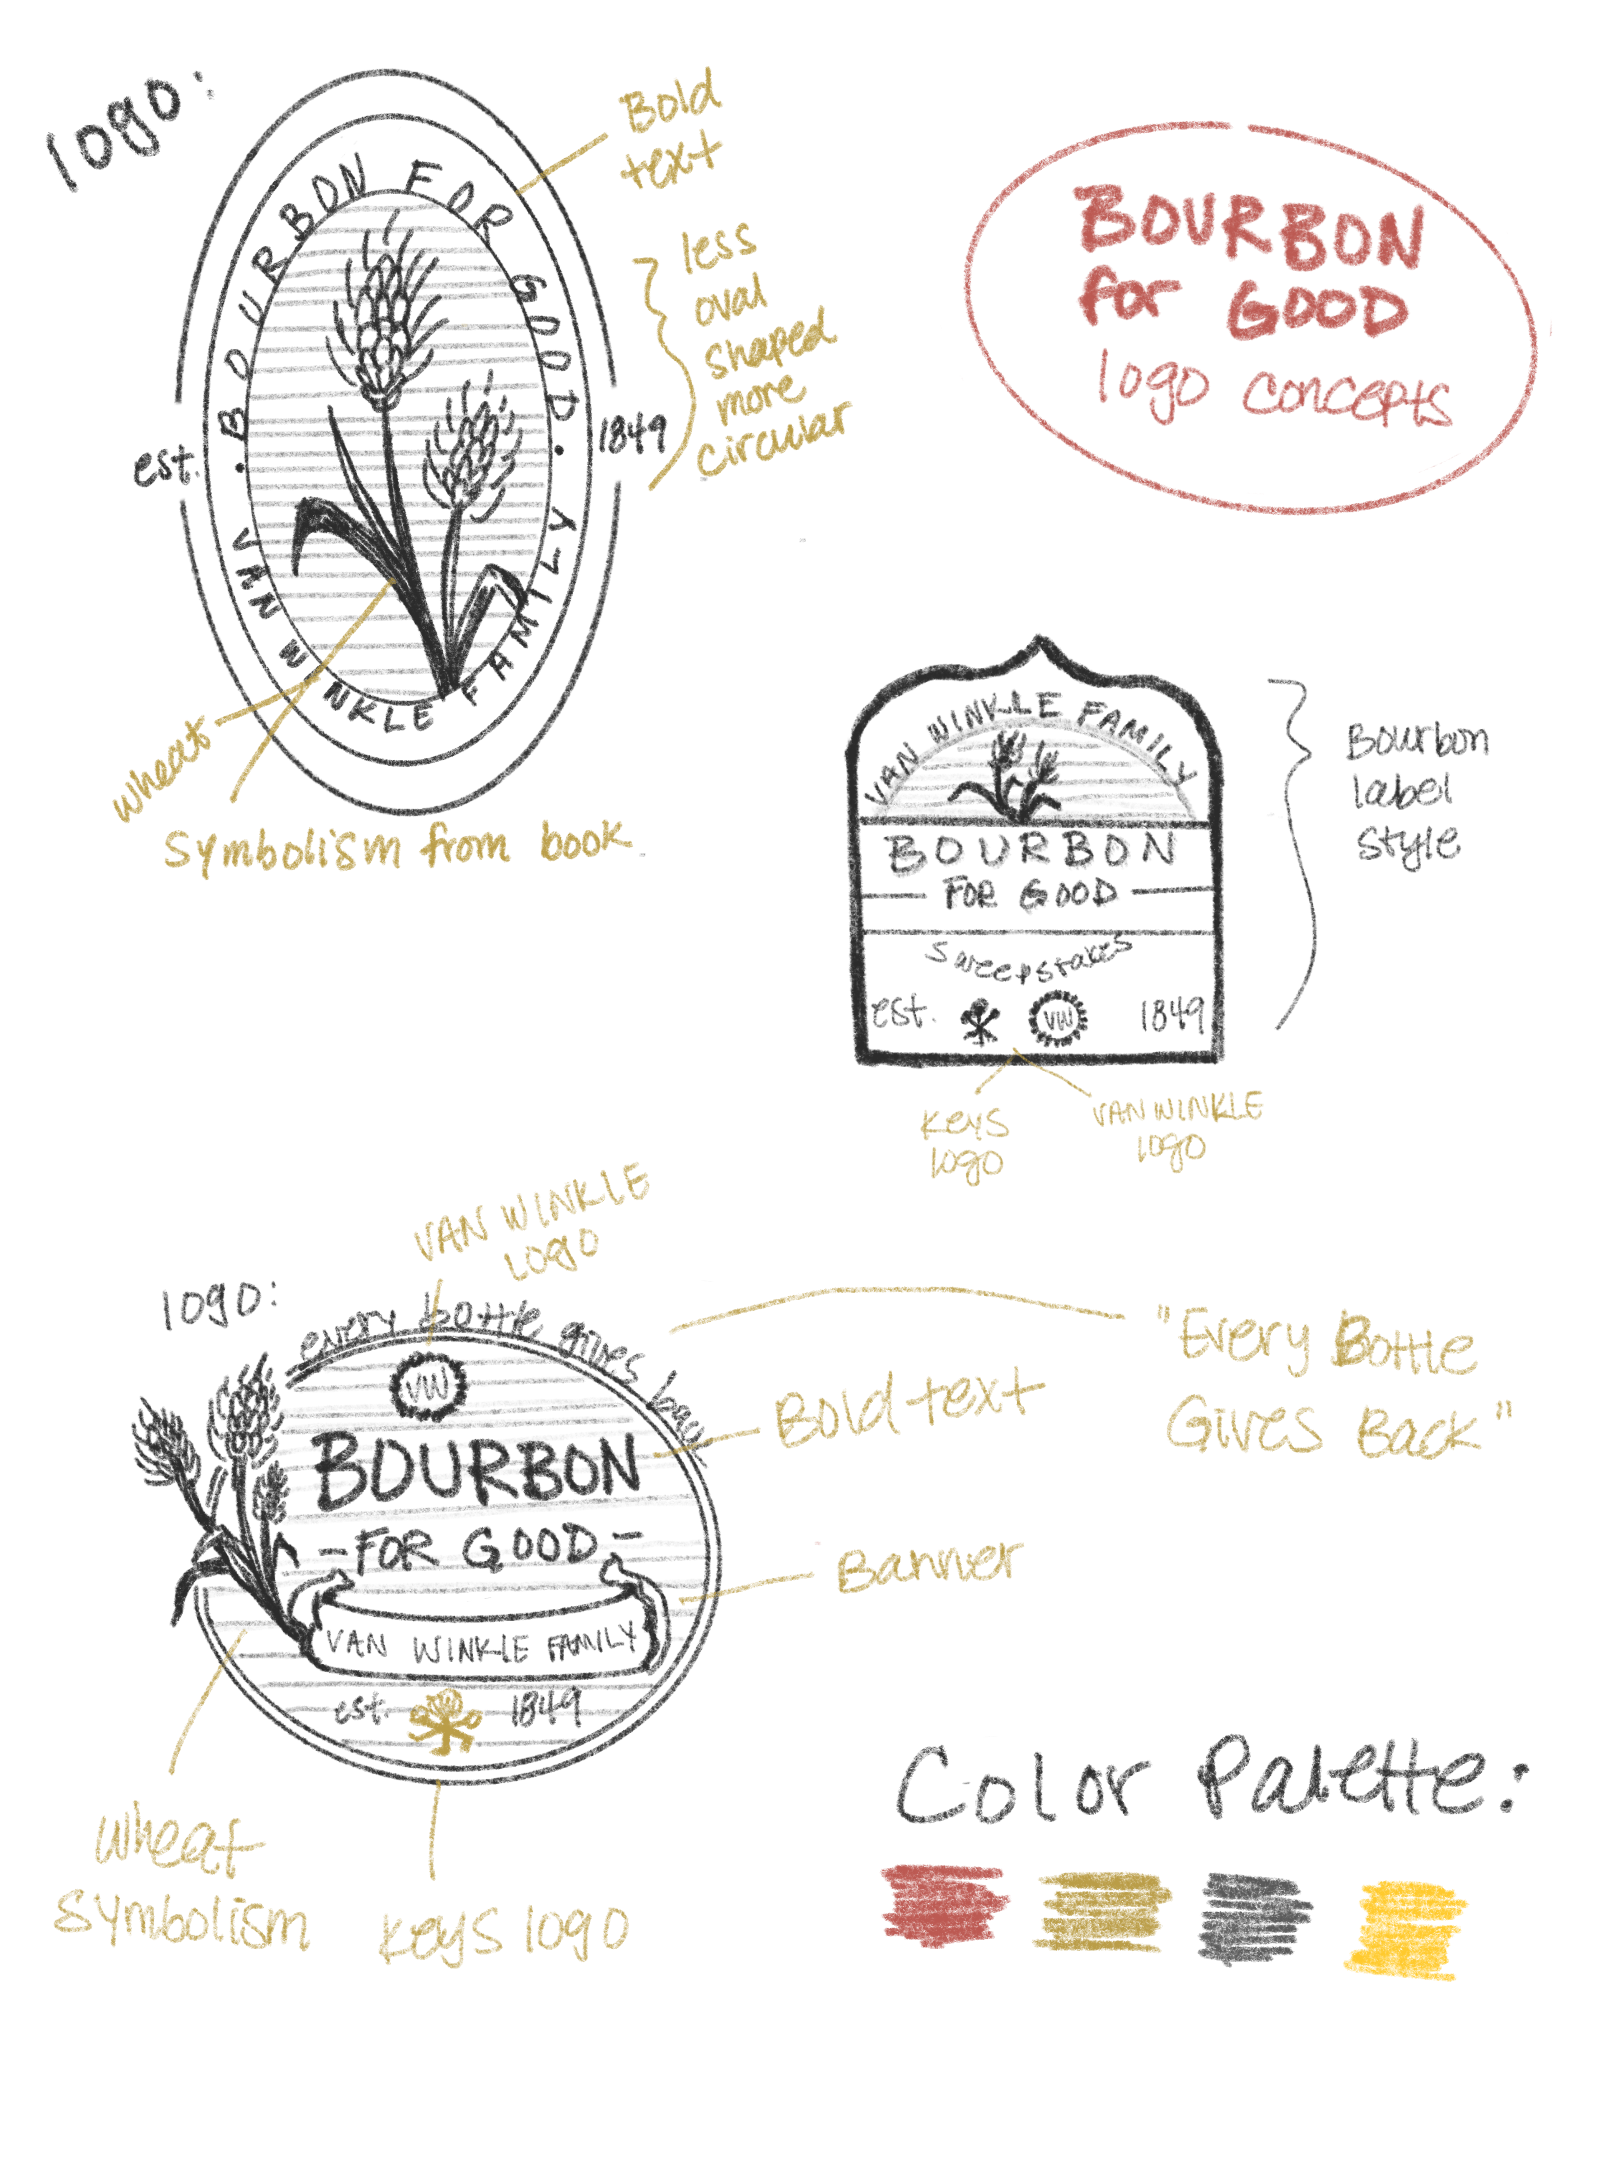 logo:
BOURBON FOR GOOD.
• VAN WINKLE FAMILY
est.
1849
Bold
text
less
oval
shaped
more
circular
wheat
Symbolism from book
BOURBON
for GOOD
logo concepts
VAN WINKLE FAMILY
BOURBON
FOR GOOD
Sweepstakes
est.
VW
1849
Bourbon
label
style
KEYS
logo
VAN WINKLE
logo
VAN WINKLE
LOGO
logo:
every bottle gives back
VW
BOURBON
-FOR GOOD-
VAN WINKLE FAMILY
est.
1849
"Every Bottle
Gives Back"
Bold text
Banner
wheat
symbolism
keys logo
Color Palette: